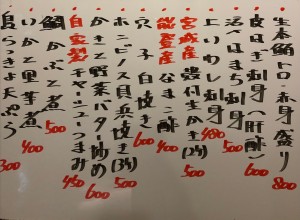 生本鮪トロ・赤身盛り 800
皮はぎ刺身(肝酢) 600
活〆はまち刺身 500
上いわし刺 480
宮城産 殻付生かき(2ケ) 500
能登産 なまこ酢 400
穴子白焼き 600
ホンビノス貝浜焼き(3ケ) 500
かきと野菜バター炒め 600
自家製チャーシューつまみ 450
鯛かぶと煮 500
いかと里芋煮 400
らっきょ天ぷら 300